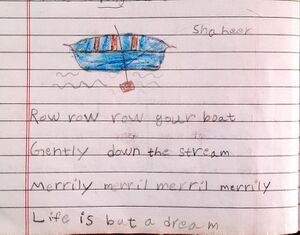 Row row row your boat
Gently down the stream
Merrily merril merril merrily
Life is but a dream